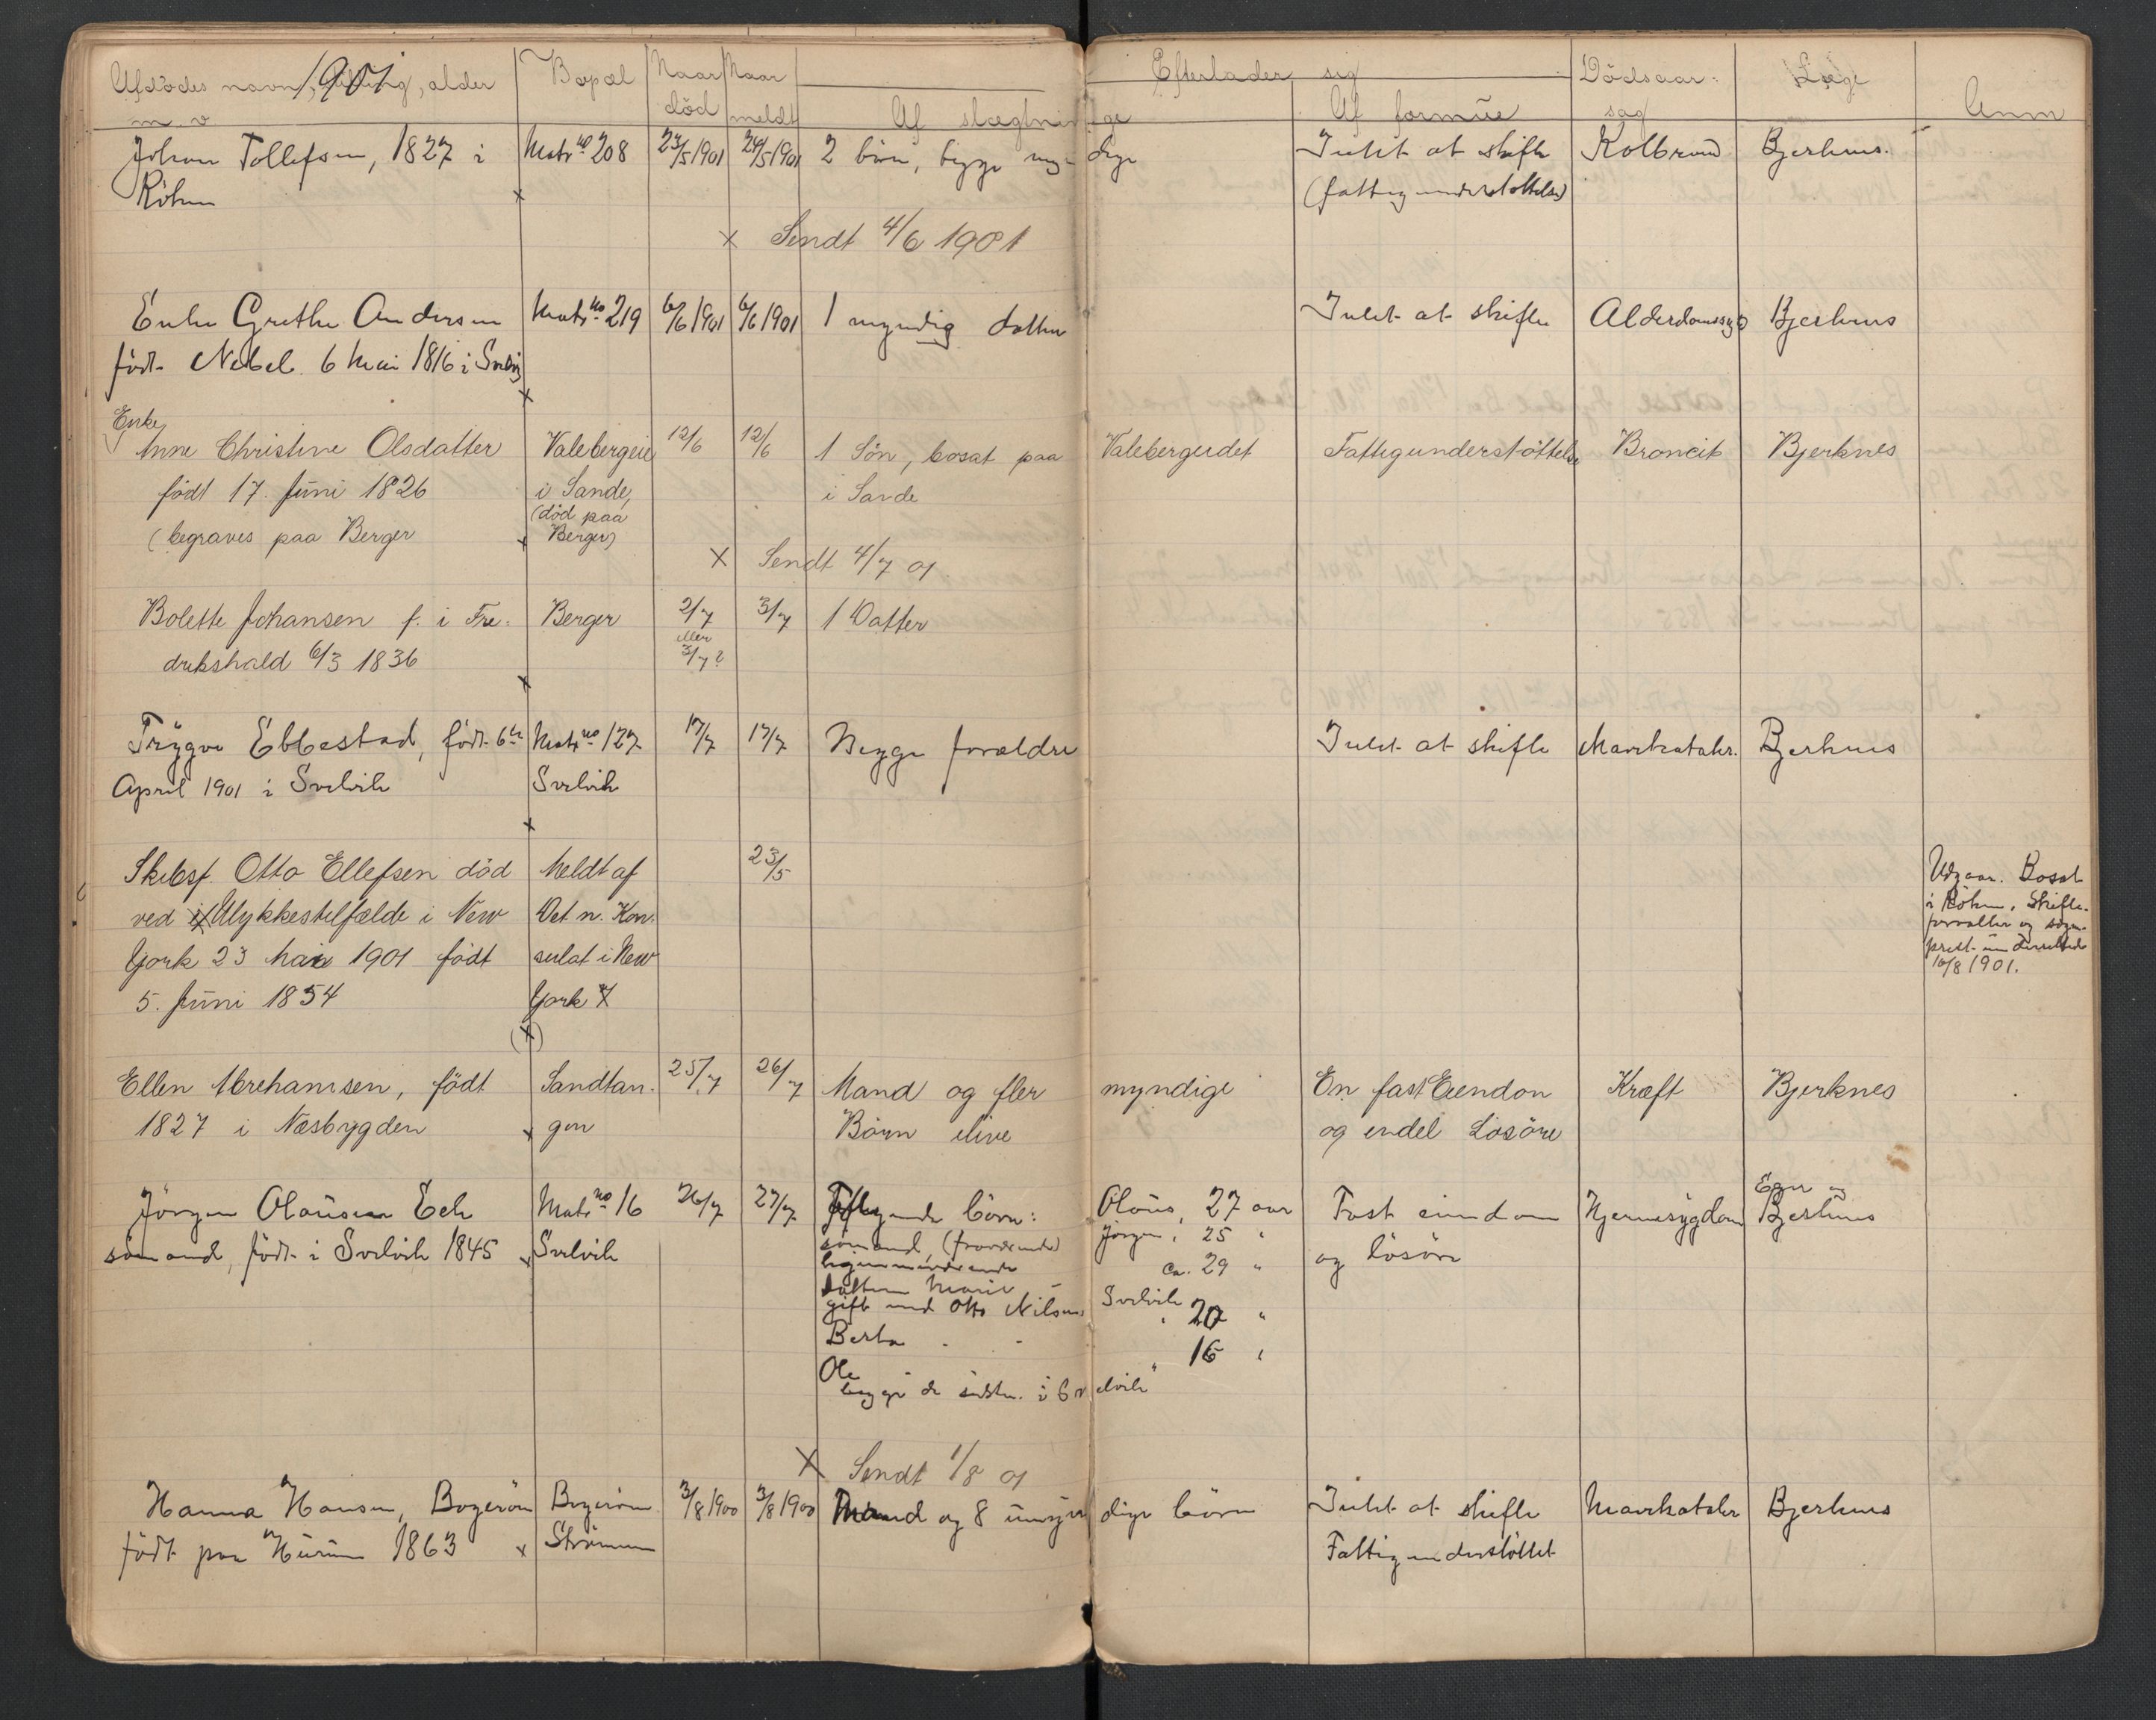 Afdødes navn, stilling, alder m. v. 1901 Bopæl Naar død Naar meldt Efterlader sig Dödsaarsag Læge Anm
Af slægtninge Af formue
Johan Tollefsen, 1827 i Matr no 208 23/5 1901 24/5 1901 2 börn, begge myndige Intet at skifte Kolbrand Bjerknes.
Röken x (fattigunderstöttelse)
x Sendt 4/6 1901
Enke Grethe Andersen Matr no 219 6/6 1901 6/6 1901 1 myndig datter Intet at skifte Alderdomssyg Bjerknes
födt Nebel 6 Mai 1816 i Svelvig
x
Enke
Anne Christine Olsdatter Valebergeie 12/6 12/6 1 Sön, bosat paa Valebergeidet Fattigunderstöttelse Broncit Bjerknes
födt 17. Juni 1826 i Sande, i Sande
(död paa
(begraves paa Berger x Berger)
x Sendt 4/7 01
Bolette Johansen f. i Fre- Berger 2/7 3/7 1 Datter
eller
drikshald 6/3 1836 3/7?
x
Trygve Ebbestad, födt 6te Matr no 127 17/7 17/7 Begge forældre Intet at skifte Mavekatahr. Bjerknes
April 1901 i Svelvik Svelvik
x
Skibsf. Otto Ellefsen död Meldt af 23/5 Udgaar. Bosat
ved Ulykkestilfælde i New Det n. Kon- i Röken. Skifte-
forvalter og sogne-
York 23 Mai 1901 födt sulat i New prest underrettede
5. Juni 1854 York x 10/8 1901.
(x)
Ellen Abrehamsen, födt Sandtan- 25/7 26/7 Mand og fler myndige En fast Eiendom Kræft Bjerknes
1827 i Næsbygden x gen Börn ilive og endel Lösöre
Jörgen Olausen Eek Matr no 16 26/7 27/7 Fölgende börn: Olaus, 27 aar Fast eiendom Hjernesygdom Eger og Bjerknes
sömand, födt i Svelvik 1845 x Svelvik sömand, (fraværende) Jörgen, 25 " og lösöre
ligesaa ca. 29 "
datteren Marie
gift med Otto Nilsen, Svelvik
Berta - - 20 "
Ole 16 "
begge de sidste i Svelvik
x Sendt 1/8 01
Hanna Hansen, Bogerön Bogerön 3/8 1900 3/8 1900 Mand og 8 umyndige börn Intet at skifte Mavekatahr Bjerknes
födt paa Hurum 1863 x Strömmen Fattigunderstöttet